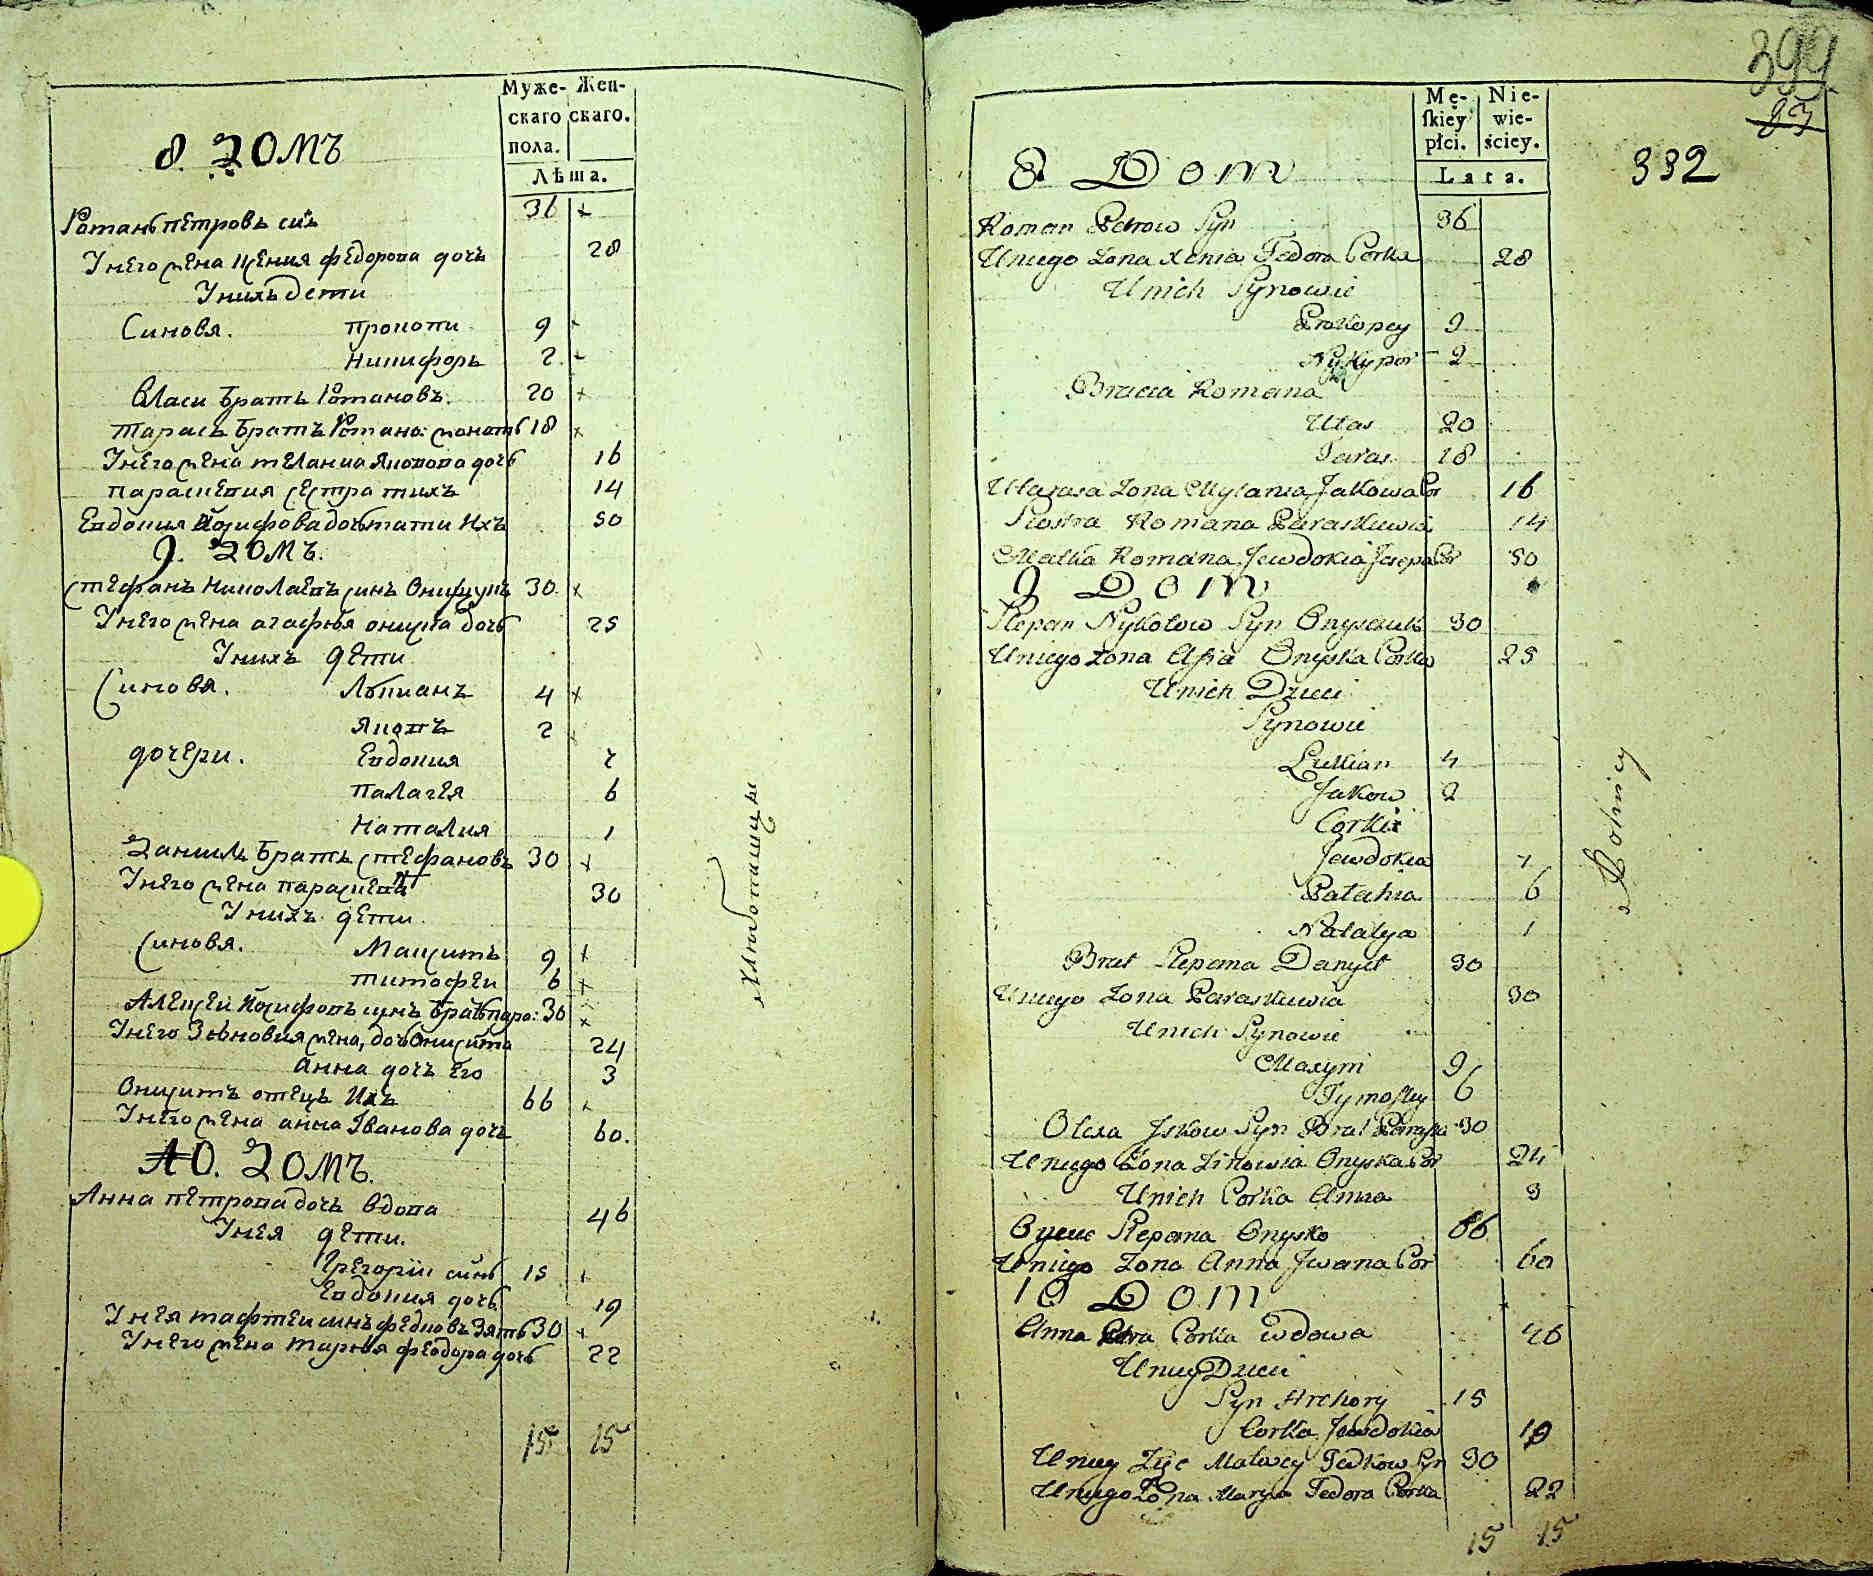 Муже-
скаго
пола.
Жен-
скаго.
Лѣта.
8. Домъ
Романъ Петровъ синъ 36
У него жена Ксения Федорова дочъ 28
У нихъ дети
Синовя. Прокопи 9
Никифоръ 2
Власи братъ Романовъ. 20
Тарасъ братъ Романо: женатъ 18
У него жена Мелания Яковова дочъ 16
Параскевия сестра тихъ 14
Евдокия Иосифова дочъ мати ихъ 50
9. Домъ.
Стефанъ Николаевъ синъ Онищукъ 30
У него жена Агафѣя Ониська дочъ 25
У нихъ дети
Синовя. Лукианъ 4
Яковъ 2
дочери. Евдокия 7
Палагея 6
Наталия 1
Данилъ братъ Стефановъ 30
У него жена Параскевия 30
У нихъ дети
Синовя. Максимъ 9
Тимофеи 6
Алексеи Иосифовъ синъ братъ пара: 30
У него Зѣновия жена, дочъ Онисима 24
Анна дочъ его 3
Онисимъ отецъ ихъ 66
У него жена Анна Иванова дочъ 60.
10. Домъ.
Анна Петрова дочъ вдова 46
У нея дети.
Грегории синъ 15
Евдокия дочъ 19
У нея Матфеи синъ Федковъ зять 30
У него жена Маръя Феодора дочъ 22
15 15
Хлѣбопашцы
399
83
332
Mę-
skiey
płci.
Nie-
wie-
ściey.
Lata.
8 Dom
Roman Petrow Syn 36
U niego Zona Xenia Fedora Corka 28
U nich Synowie
Prokopey 9
Nykypor 2
Bracia Romana
Ułas 20
Taras 18
U Tarasa Zona Mylania Jakowa Cor 16
Siostra Romana Paraskiewia 14
Matka Romana Jewdokia Josepa Cor 50
9 Dom
Stepan Nykołow Syn Onyszczuk 30
U niego Zona Afia Onyska Corka 25
U nich Dzieci
Synowie
Lukian 4
Jakow 2
Corki
Jewdokia 7
Patahia 6
Natalya 1
Brat Stepana Danyło 30
U niego Zona Paraskiewia 30
U nich Synowie
Maxym 9
Tymofiey 6
Olexa Jskow Syn Brat Paraski 30
U niego Zona Zinowia Onyska Cor 24
U nich Corka Anna 3
Oyciec Stepana Onysko 66
U niego Zona Anna Jwana Cor 60
10 Dom
Anna Petra Corka wdowa 46
U niey Dzieci
Syn Hrehory 15
Corka Jewdokia 19
U niey Zięć Matwey Fedkow Syn 30
U niego Zona Marya Fedora Corka 22
15 15
Rolnicy